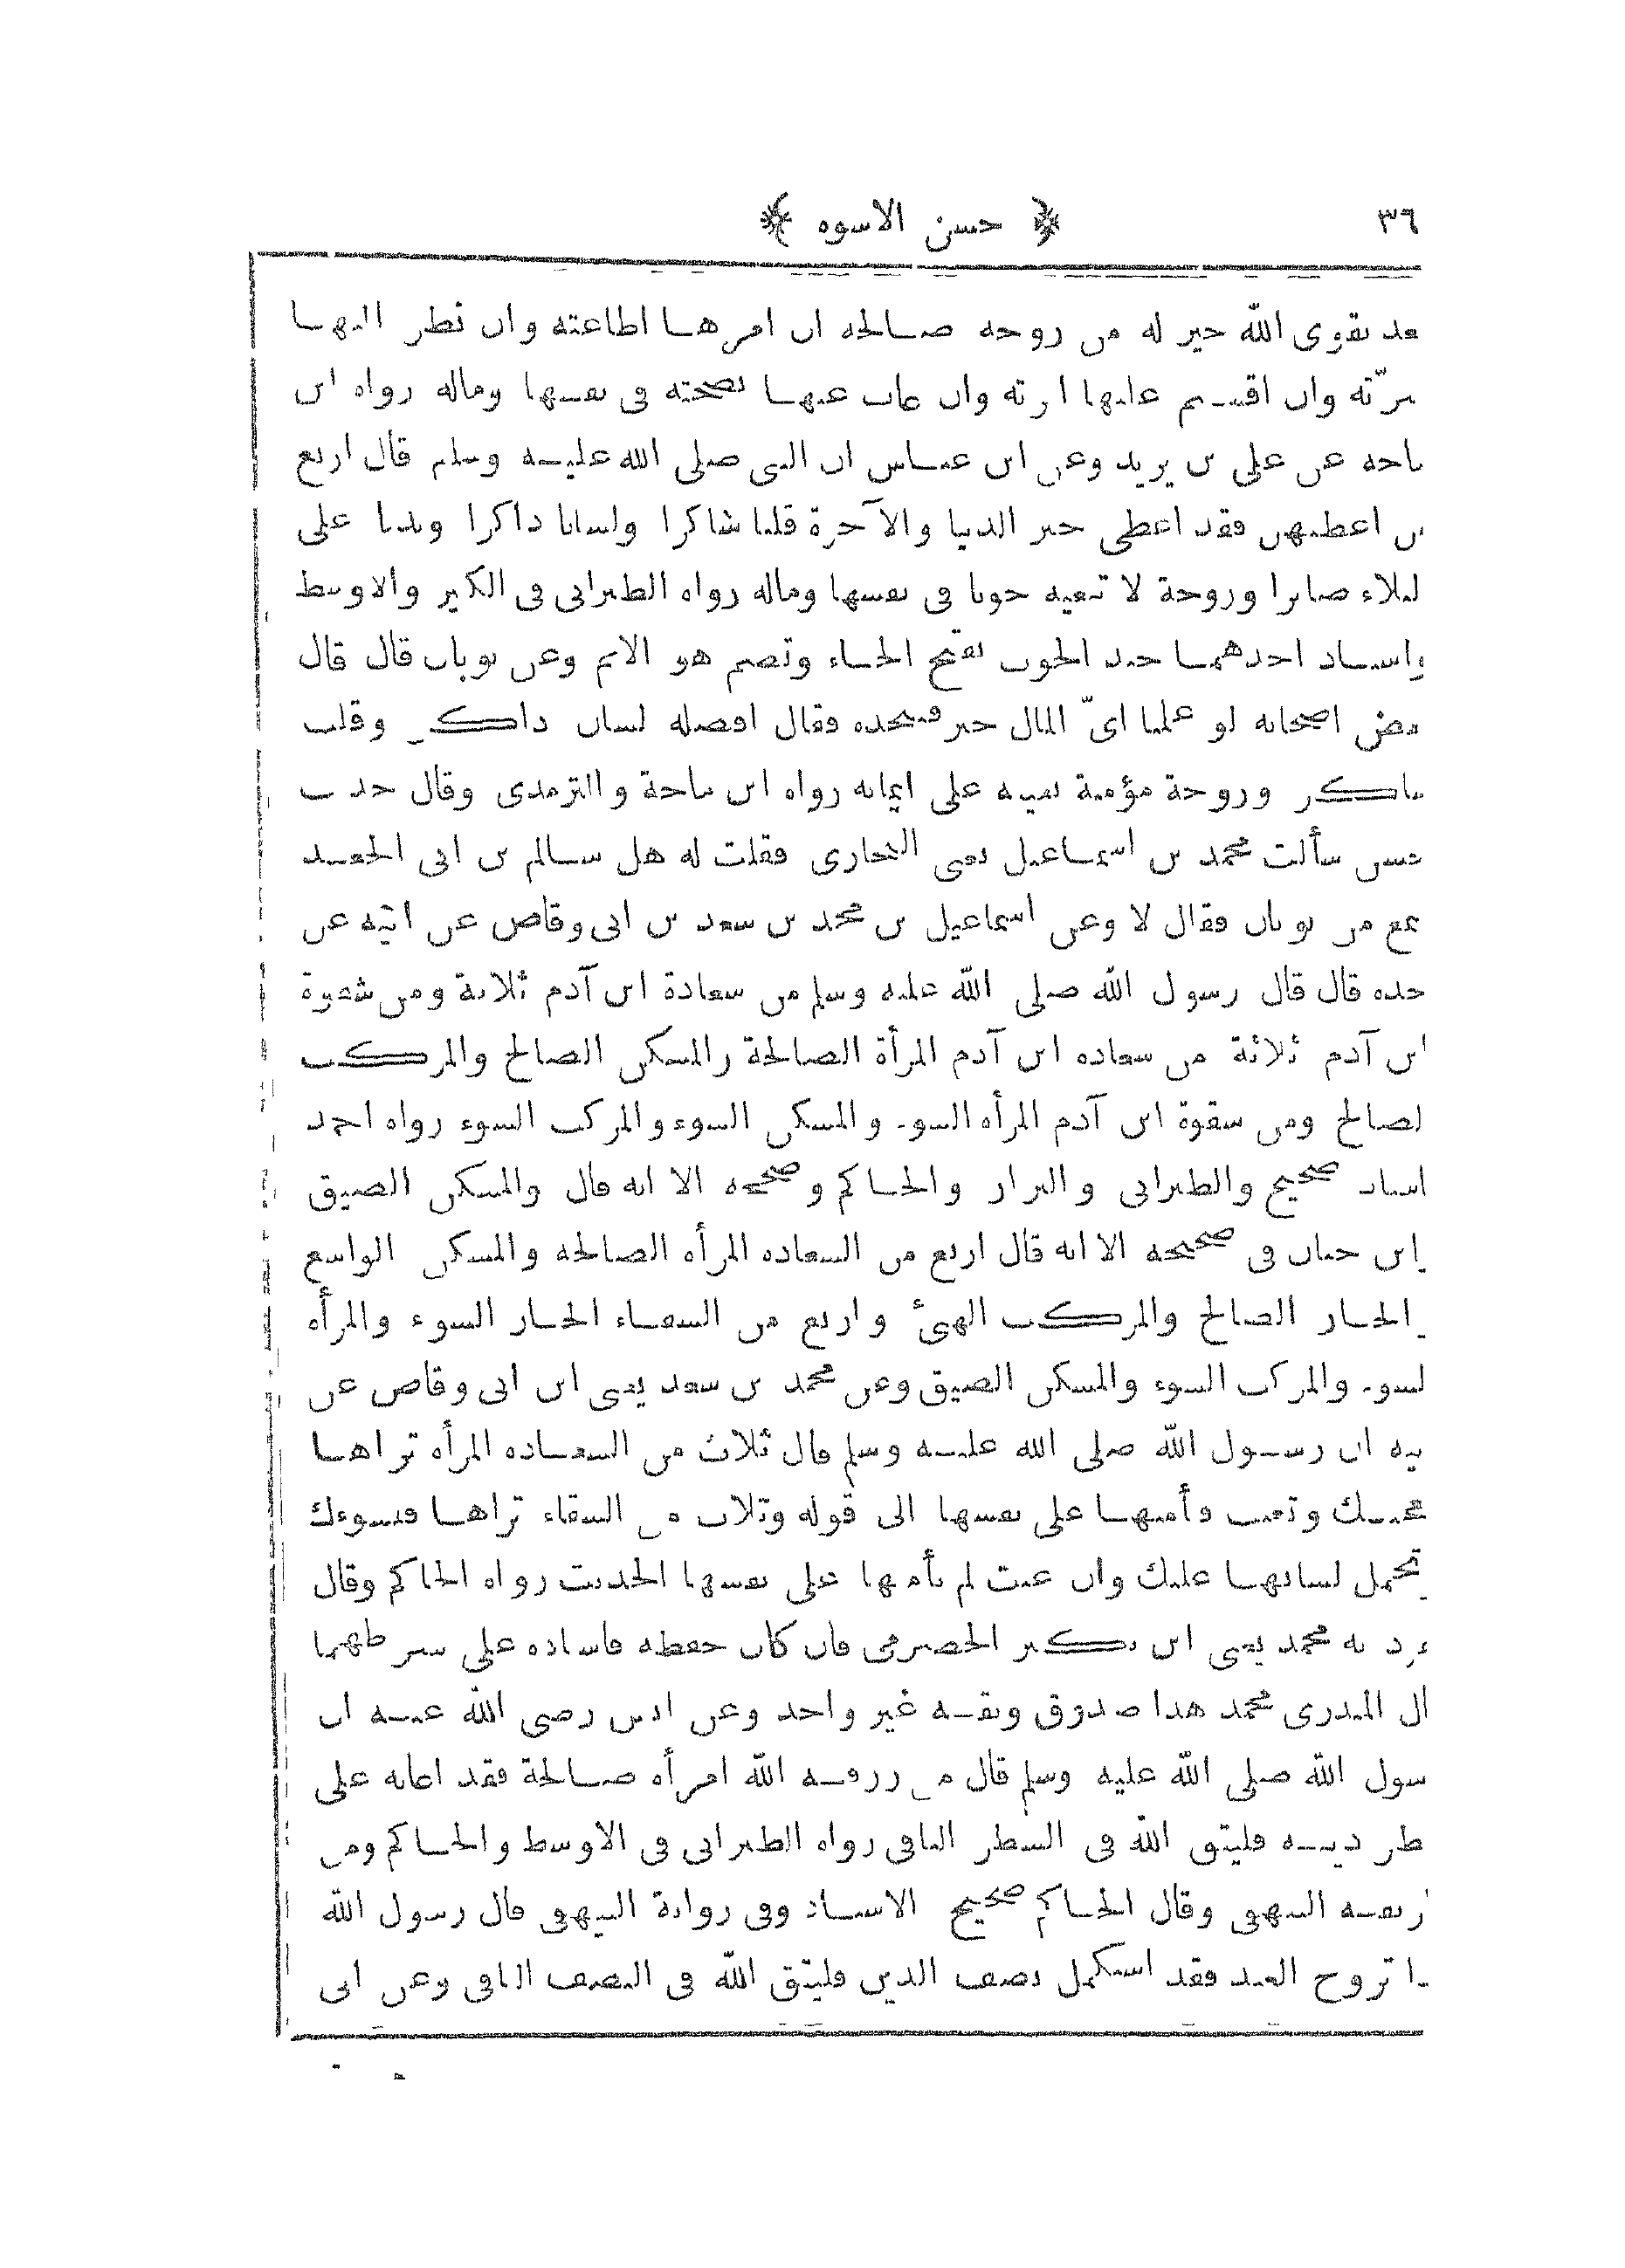 ٣٦
﴿ حسن الاسوه ﴾
بعد تقوى الله خير له من زوجه صالحه ان امرها اطاعته وان نظر اليها
سرّته وان اقسم عليها ابرته وان غاب عنها نصحته فى نفسها وماله رواه ابن
ماجه عن على بن يزيد وعن ابن عباس ان النبى صلى الله عليه وسلم قال اربع
من اعطيهن فقد اعطى خير الدنيا والآخرة قلبا شاكرا ولسانا ذاكرا وبدنا على
البلاء صابرا وزوجة لا تبغيه حوبا فى نفسها وماله رواه الطبرانى فى الكبير والاوسط
واسناد احدهما جيد الحوب بفتح الحاء وتضم هو الاثم وعن ثوبان قال قال
بعض اصحابه لو علمنا اىّ المال خير فنتخذه فقال افضله لسان ذاكر وقلب
شاكر وزوجة مؤمنة تعينه على ايمانه رواه ابن ماجة والترمذى وقال حديث
حسن سألت محمد بن اسماعيل يعنى البخارى فقلت له هل سالم بن ابى الجعد
سمع من ثوبان فقال لا وعن اسماعيل بن محمد بن سعد بن ابى وقاص عن ابيه عن
جده قال قال رسول الله صلى الله عليه وسلم من سعادة ابن آدم ثلاثة ومن شقوة
ابن آدم ثلاثة من سعاده ابن آدم المرأة الصالحة والمسكن الصالح والمركب
الصالح ومن شقوة ابن آدم المرأه السوء والمسكن السوء والمركب السوء رواه احمد
باسناد صحيح والطبرانى والبزار والحاكم وصححه الا انه قال والمسكن الضيق
وابن حبان فى صحيحه الا انه قال اربع من السعاده المرأه الصالحه والمسكن الواسع
والجار الصالح والمركب الهنئ واربع من الشقاء الجار السوء والمرأه
السوء والمركب السوء والمسكن الضيق وعن محمد بن سعد يعنى ابن ابى وقاص عن
ابيه ان رسول الله صلى الله عليه وسلم قال ثلاث من السعاده المرأه تراها
تعجبك وتغيب فأمنها على نفسها الى قوله وثلاث من الشقاء تراها فتسوءك
وتحمل لسانها عليك وان غبت لم تأمنها على نفسها الحديث رواه الحاكم وقال
تفرد به محمد يعنى ابن بكير الحضرمى فان كان حفظه فاسناده على شرطهما
قال المنذرى محمد هذا صدوق وثقه غير واحد وعن انس رضى الله عنه ان
رسول الله صلى الله عليه وسلم قال من رزقه الله امرأه صالحة فقد اعانه على
شطر دينه فليتق الله فى الشطر الباقى رواه الطبرانى فى الاوسط والحاكم ومن
طريقه البيهقى وقال الحاكم صحيح الاسناد وفى رواية البيهقى قال رسول الله
اذا تزوج العبد فقد استكمل نصف الدين فليتق الله فى النصف الباقى وعن ابى